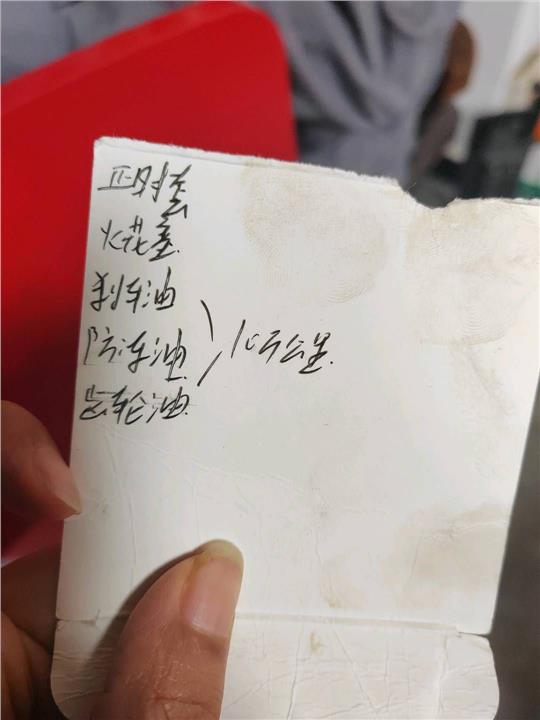 正时套
火花塞
刹车油
防冻油
齿轮油
10万公里